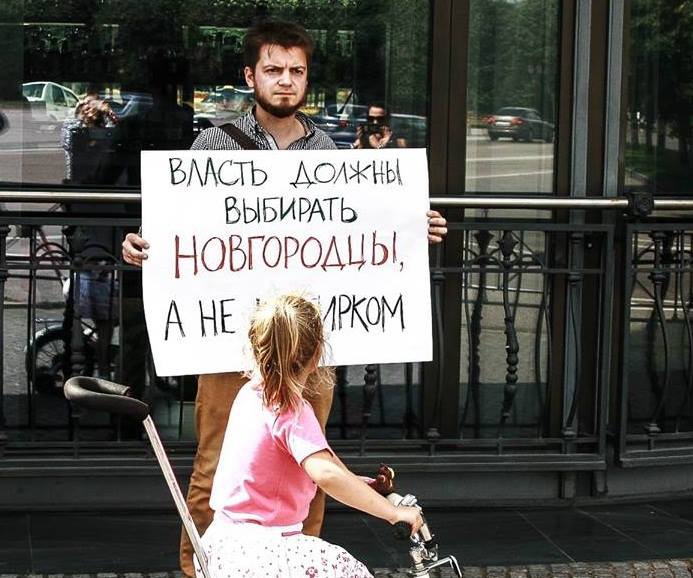 ВЛАСТЬ ДОЛЖНЫ
ВЫБИРАТЬ
НОВГОРОДЦЫ,
А НЕ